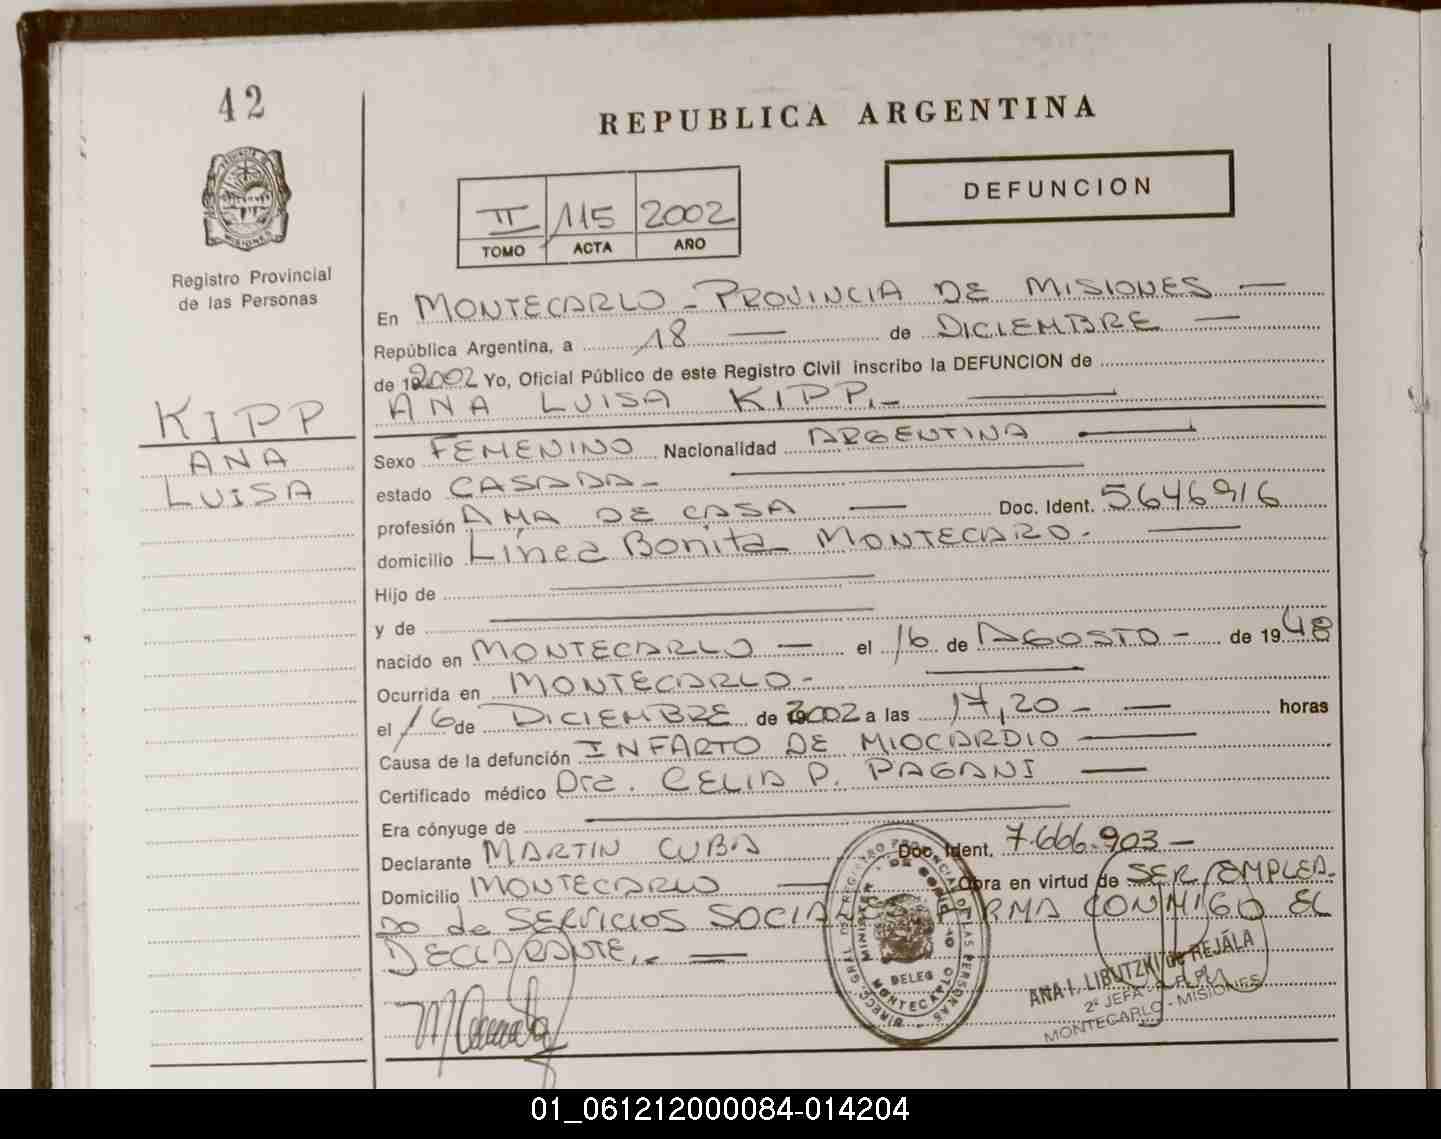 42
REPUBLICA ARGENTINA
DEFUNCION
II 115 2002
TOMO ACTA AÑO
Registro Provincial
de las Personas
MISIONES
En MONTECARLO - PROVINCIA DE MISIONES —
República Argentina, a 18 — de DICIEMBRE —
de 2002 Yo, Oficial Público de este Registro Civil inscribo la DEFUNCION de
ANA LUISA KIPP.-
KIPP
ANA
LUISA
Sexo FEMENINO Nacionalidad ARGENTINA
estado CASADA-
profesión AMA DE CASA — Doc. Ident. 5646916
domicilio Línea Bonita - MONTECARO-
Hijo de
y de
nacido en MONTECARLO — el 16 de AGOSTO - de 1948
Ocurrida en MONTECARLO-
el 16 de DICIEMBRE de 2002 a las 17,20 - — horas
Causa de la defunción INFARTO DE MIOCARDIO
Certificado médico Dra. CELIA P. PAGANI
Era cónyuge de
Declarante MARTIN CUBA Doc. Ident. 7.666.903 -
Domicilio MONTECARLO — Obra en virtud de SER EMPLEA-
DO de SERVICIOS SOCIALES FIRMA CONMIGO EL
DECLARANTE.- —
DELEG
MONTECARLO
ANA I. LIBUTZKI de REJÁLA
2º JEFA
MONTECARLO - MISIONES
01_061212000084-014204